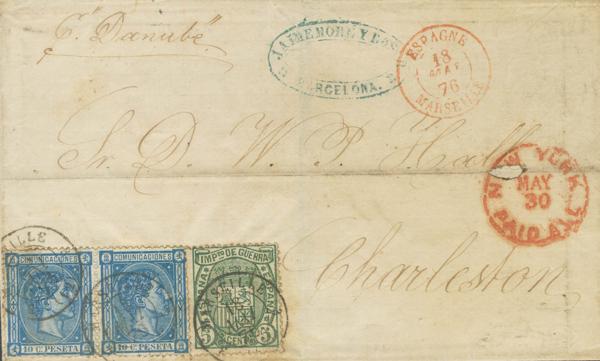 "Danube"
JAIME MORE Y BOS
BARCELONA.
ESPAGNE
18
MAI
76
MARSEILLE
Sr. D. W. P. Hall
NEW YORK
MAY
30
PAID ALL
Charleston
COMUNICACIONES
10 Cs PESETA
COMUNICACIONES
10 Cs PESETA
IMPTO DE GUERRA
5 CENT 5
MARSEILLE